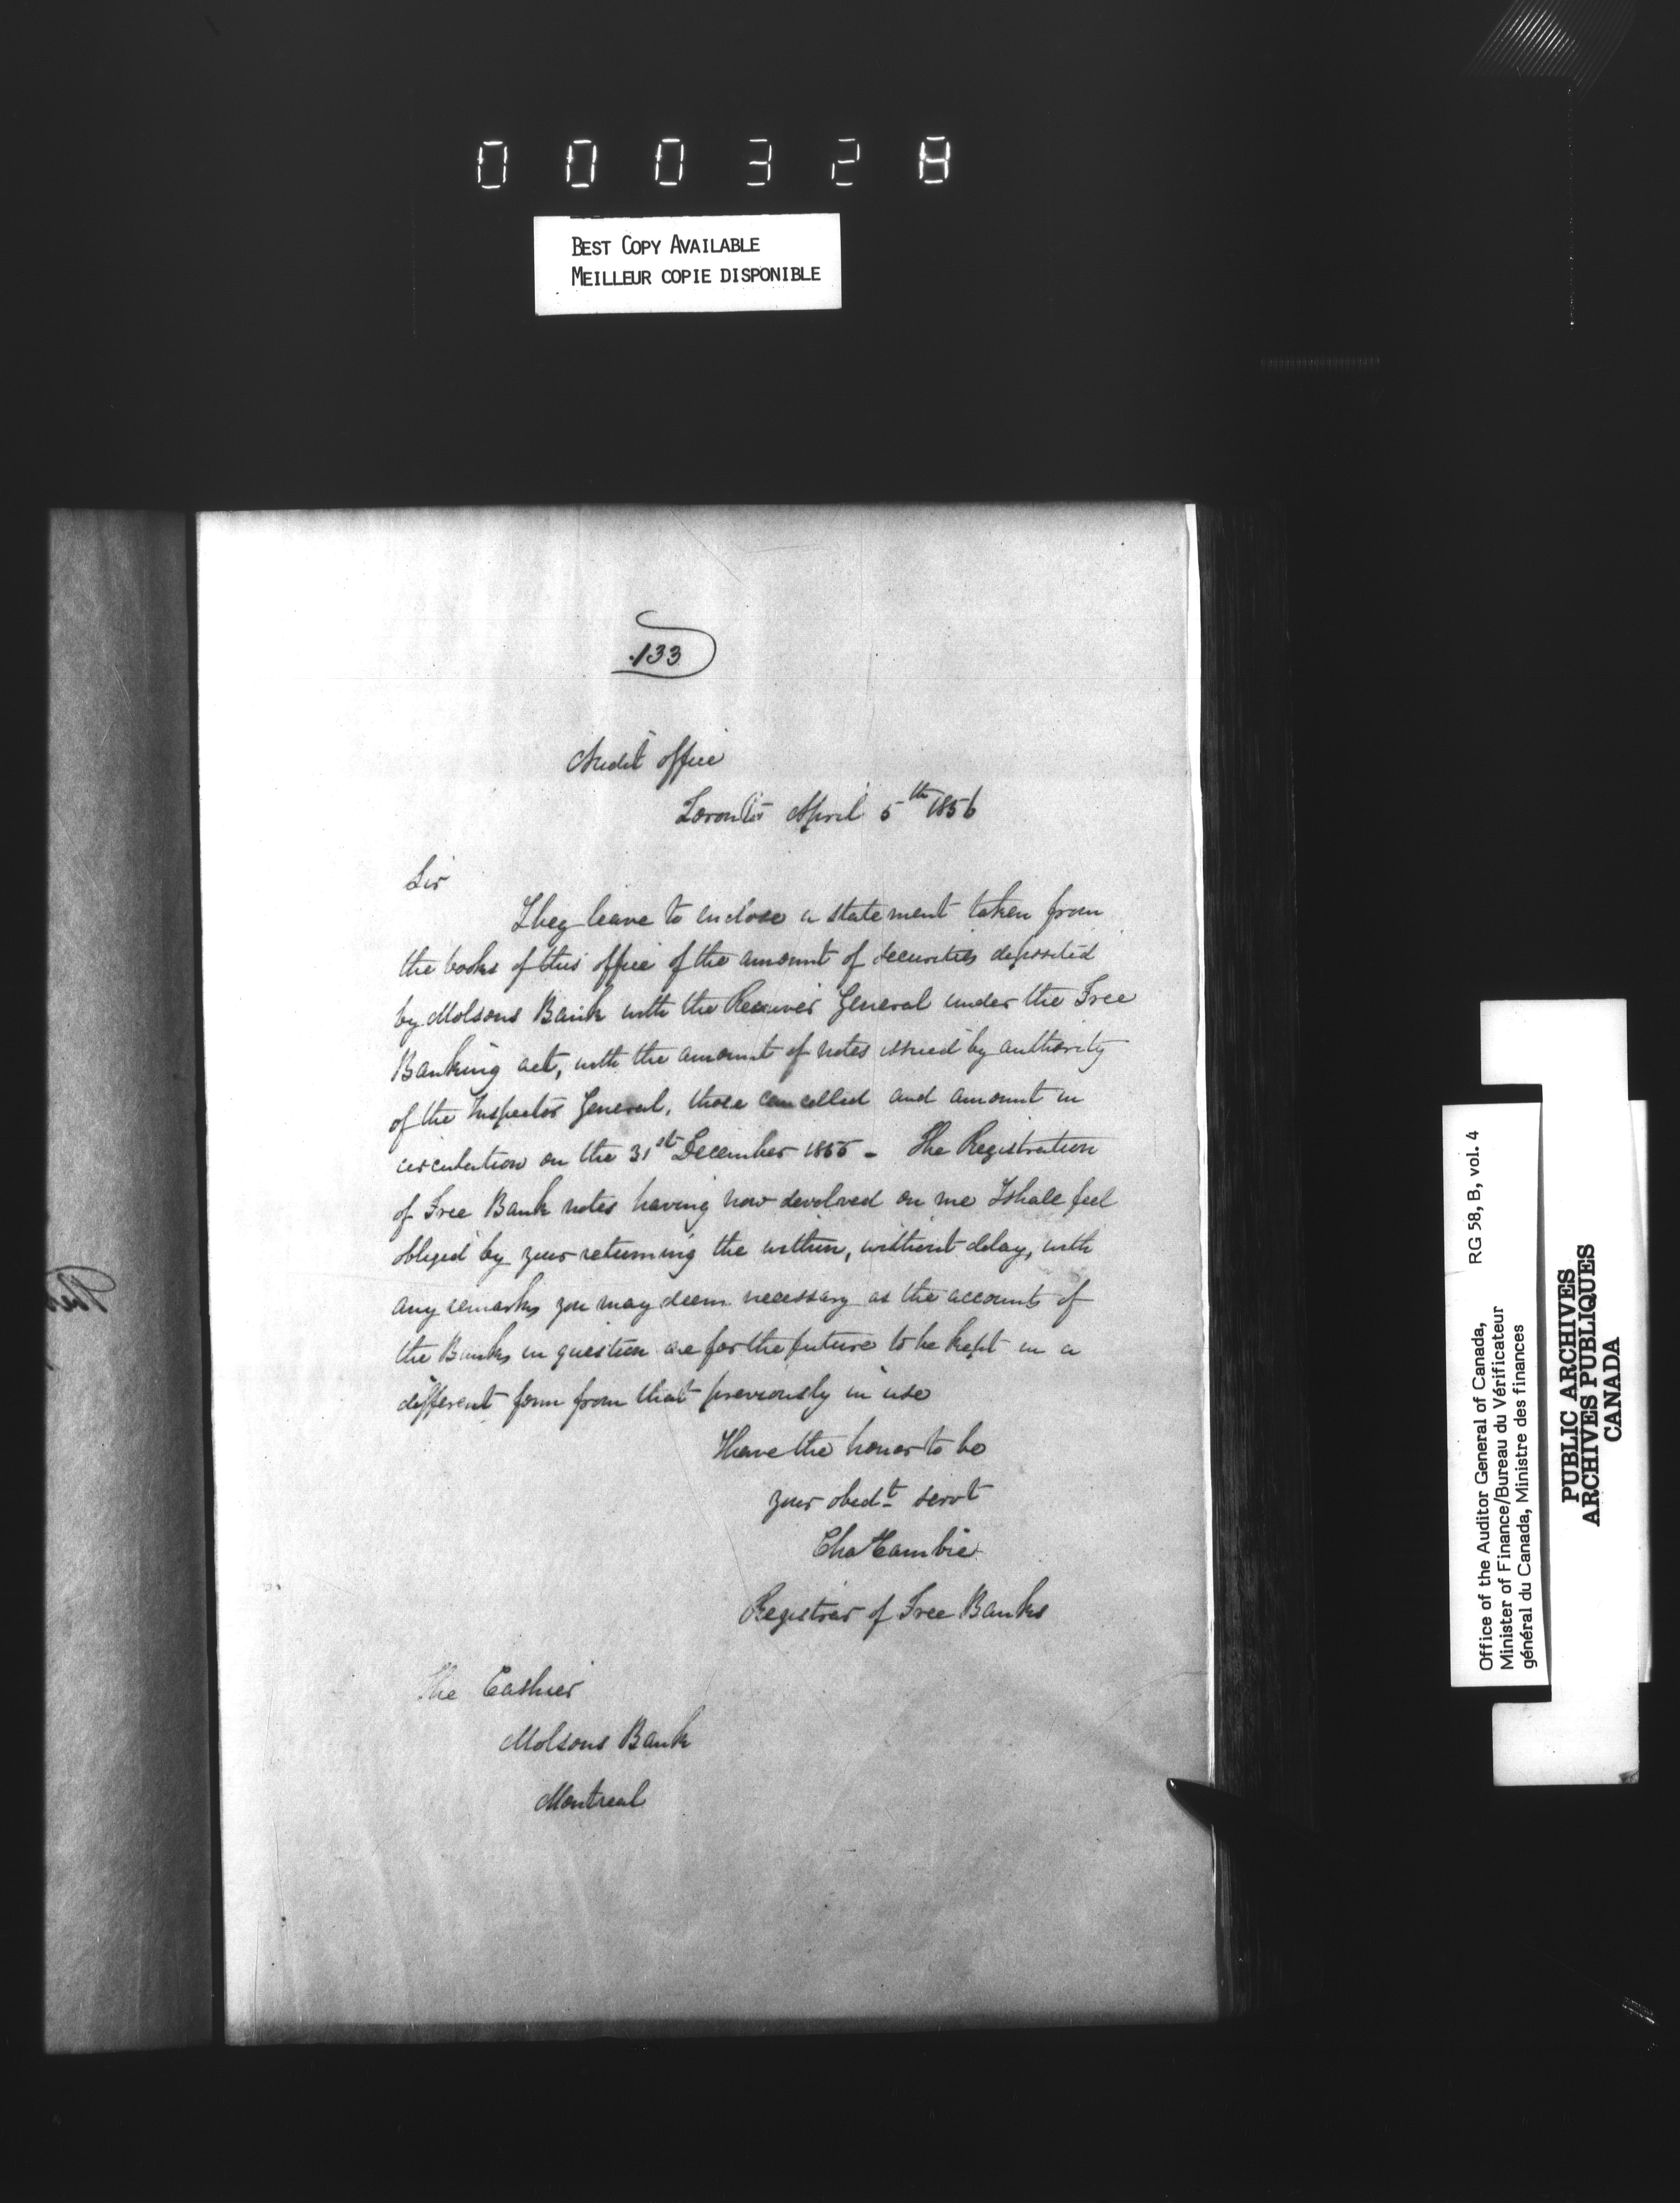 000328
BEST COPY AVAILABLE
MEILLEUR COPIE DISPONIBLE
133
Audit office
Toronto April 5th 1856
Sir
I beg leave to enclose a statement taken from
the books of this office of the amount of securities deposited
by Molsons Bank with the Receiver General under the Free
Banking act, with the amount of notes issued by authority
of the Inspector General, those cancelled and amount in
circulation on the 31st December 1855 - The Registration
of Free Bank notes having now devolved on me I shall feel
obliged by your returning the within, without delay, with
any remarks you may deem necessary as the accounts of
the Banks in question are for the future to be kept in a
different form from that previously in use
I have the honor to be
your obedt servt
Cha Cambie
Registrar of Free Banks
The Cashier
Molsons Bank
Montreal
RG 58, B, vol. 4
Office of the Auditor General of Canada,
Minister of Finance/Bureau du Vérificateur
général du Canada, Ministre des finances
PUBLIC ARCHIVES
ARCHIVES PUBLIQUES
CANADA